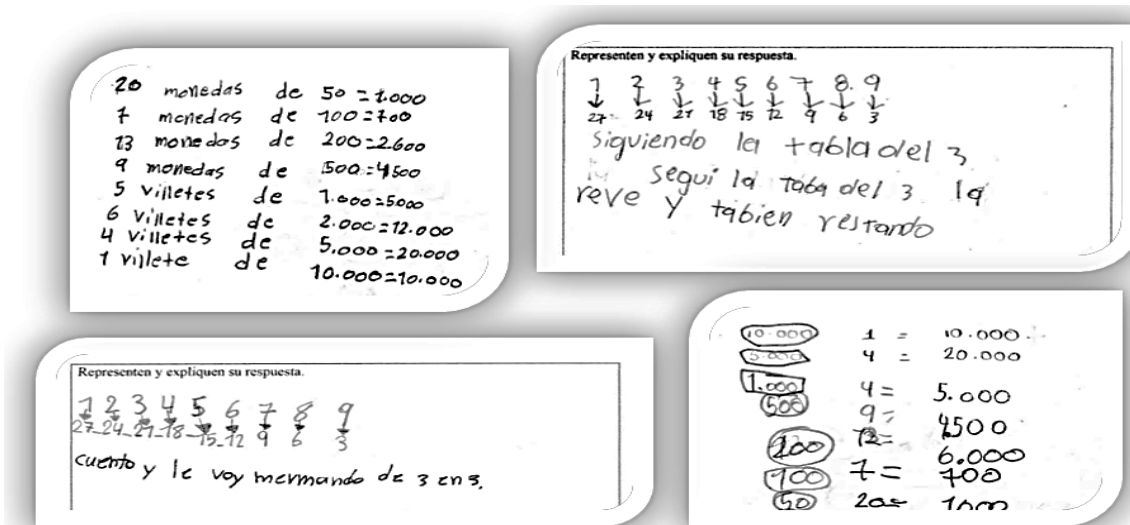 20 monedas de 50 = 1.000
7 monedas de 100 = 700
13 monedas de 200 = 2.600
9 monedas de 500 = 4500
5 villetes de 1.000 = 5000
6 villetes de 2.000 = 12.000
4 villetes de 5.000 = 20.000
1 villete de 10.000 = 10.000
Representen y expliquen su respuesta.
1 2 3 4 5 6 7 8. 9
27 24 21 18 15 12 9 6 3
siguiendo la tabla del 3
segui la taba del 3 la
reve y tabien restando
Representen y expliquen su respuesta.
1 2 3 4 5 6 7 8 9
27-24-21-18-15-12 9 6 3
cuento y le voy mermando de 3 en 3.
10.000 1 = 10.000
5.000 4 = 20.000
1.000 4 = 5.000
500 9= 4500
200 = 6.000
100 7 = 700
50 20= 1000